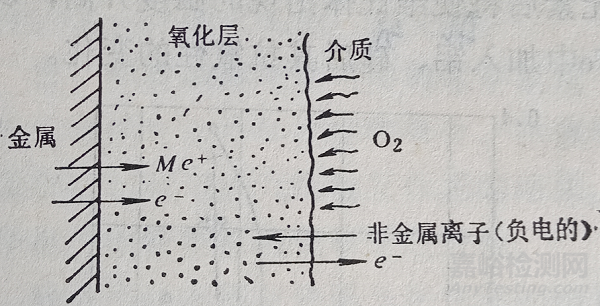 氧化层
介质
金属
O₂
Me⁺
e⁻
非金属离子(负电的)
e⁻
嘉峪检测网
AnyTesting.com